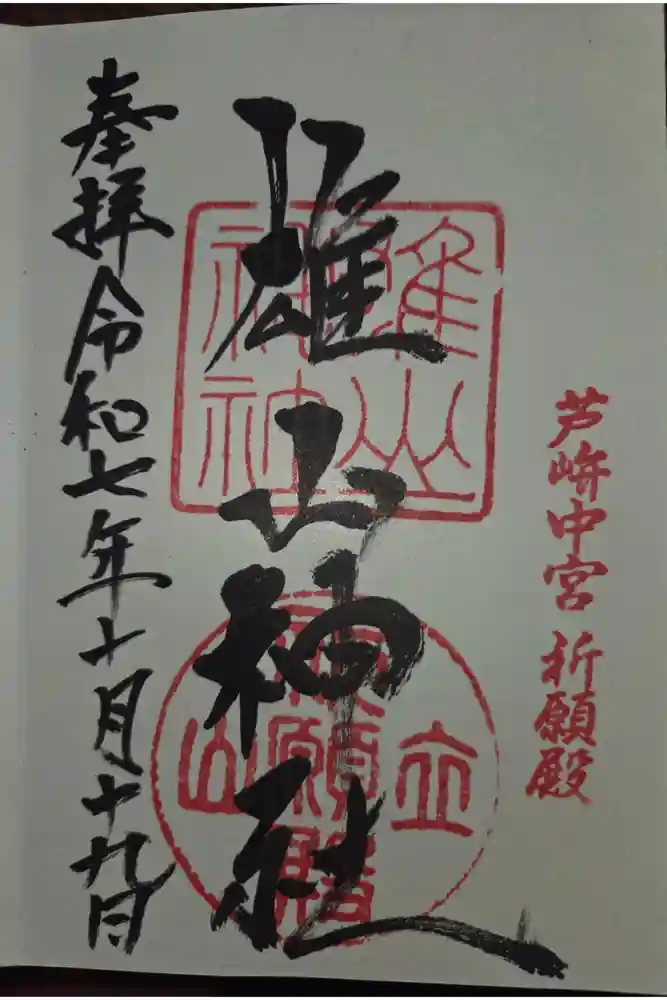 芦峅中宮 祈願殿
雄山神社
奉拝 令和七年十月十九日
雄山
神社
立
祈願殿
山